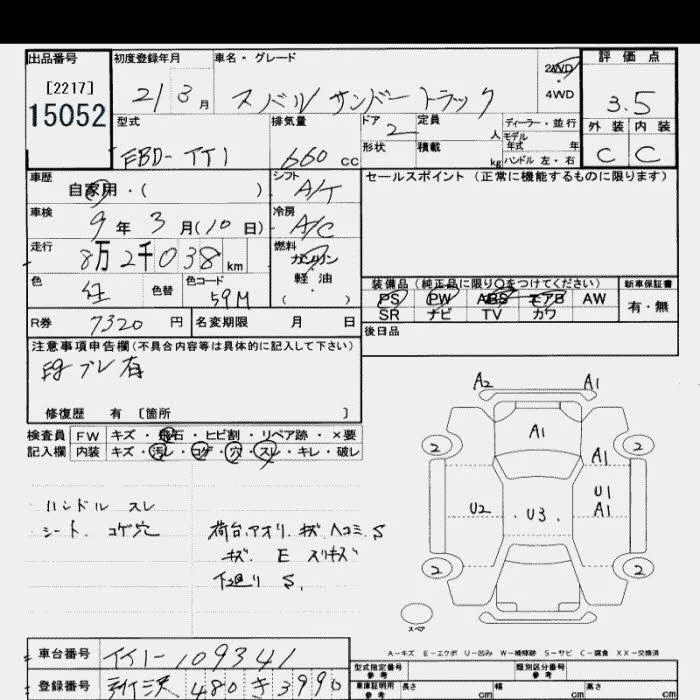 出品番号 初度登録年月 車名・グレード 2WD 評価点
[2217] 4WD
15052 21 3月 スバル サンバートラック 3.5
型式 排気量 ドア 定員 ディーラー・並行 外装 内装
2 人 モデル年式 年
EBD-TT1 660cc 形状 積載 kg ハンドル 左・右 C C
車歴 シフト セールスポイント (正常に機能するものに限ります)
自家用・( ) A/T
車検 冷房
9年 3月(10日) A/C
走行 燃料
8万2千038km ガソリン
色 色替 色コード 軽油 装備品 (純正品に限り○をつけてください) 新車保証書
59M ( ) PS PW ABS エアB AW 有・無
SR ナビ TV カワ
R券 7320円 名変期限 月 日 後日品
注意事項申告欄(不具合内容等は具体的に記入して下さい)
修復歴 有 [箇所 ]
検査員 FW キズ・飛石・ヒビ割・リペア跡・×要
記入欄 内装 キズ・汚レ・コゲ・穴・スレ・キレ・破レ
A2 A1
A1
2 2
A1
U2 U3 U1
A1
2 2
スペア
ハンドル スレ
シート コゲ穴 荷台.アオリ.キズ.ヘコミ.S
キズ. E スリキズ
下廻り S.
A-キズ E-エクボ U-凹み W-補修跡 S-サビ C-腐食 XX-交換済
車台番号 TT1-109341 型式指定番号 参考 類別区分番号 参考
登録番号 480 き 3990 車庫証明用 参考 長さ cm 幅 cm 高さ cm